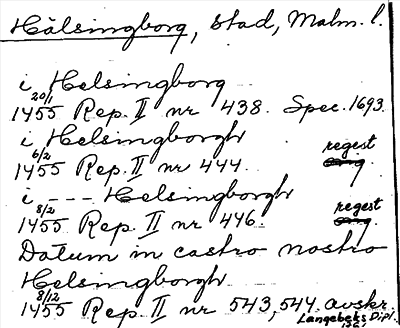 Hälsingborg, stad, Malm. l.
i Helsingborg
20/1
1455 Rep. II nr 438. Spec. 1693.
i Helsingborgh
6/2 regest
1455 Rep. II nr 444. orig.
i --- Helsingborgh
8/2 regest
1455 Rep. II nr 446. orig.
Datum in castro nostro
Helsingborgh
8/12
1455 Rep. II nr 543, 544. avskr.
Langebeks Dipl.
132.